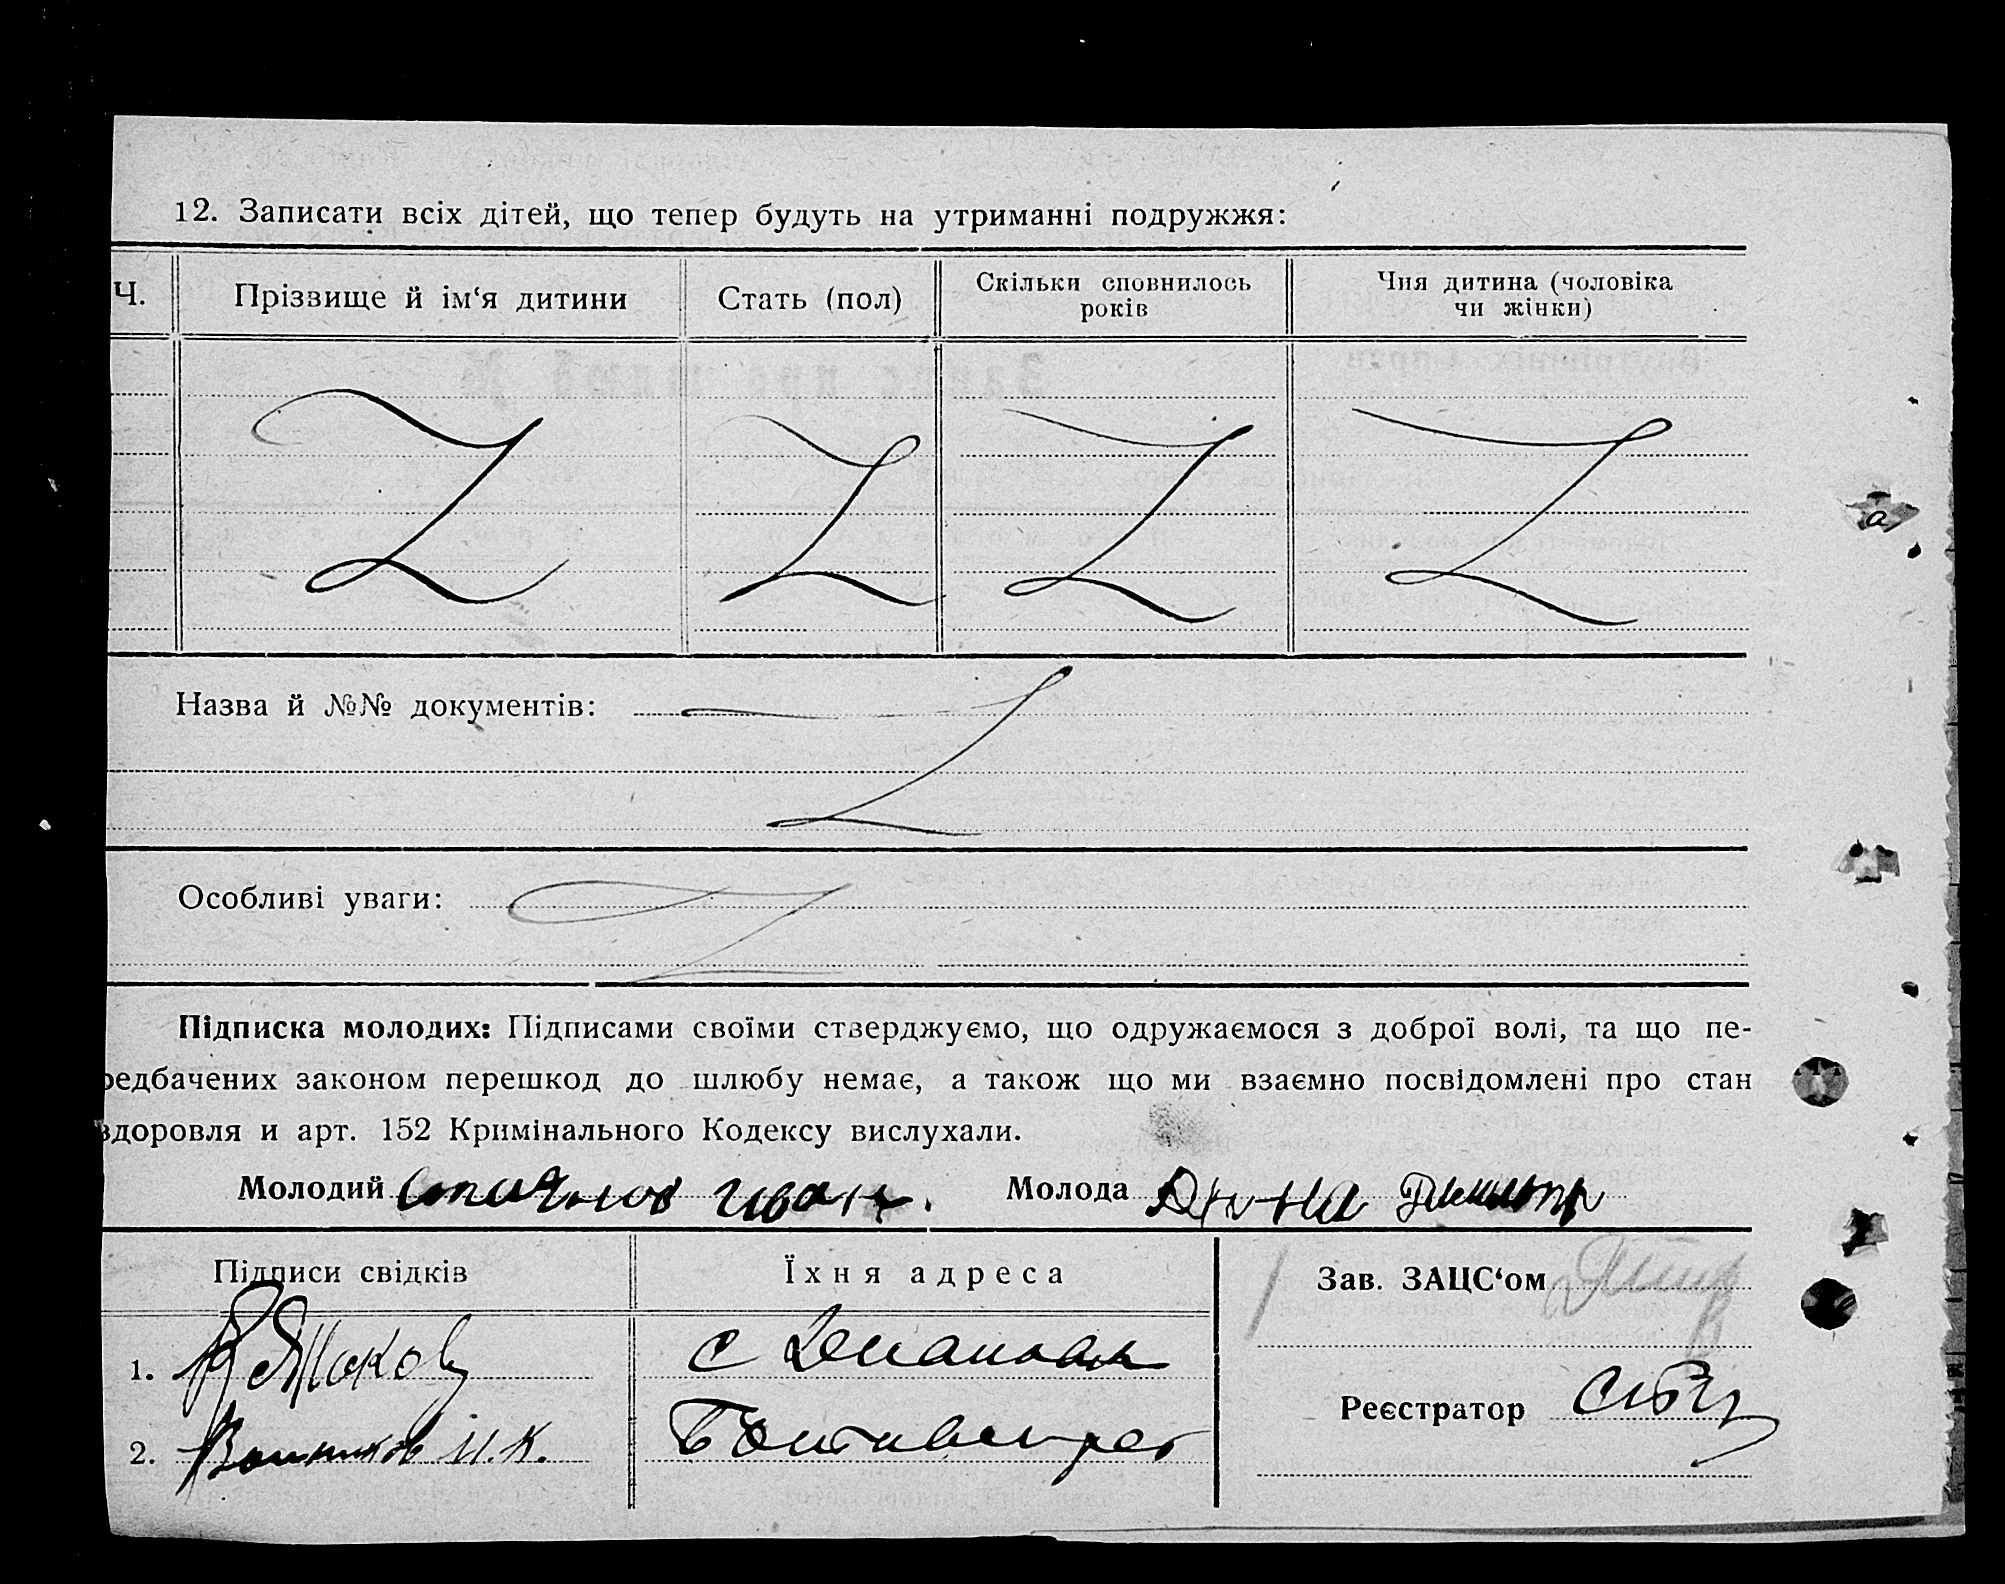 12. Записати всіх дітей, що тепер будуть на утриманні подружжя:
Ч. Прізвище й ім‘я дитини Стать (пол) Скільки сповнилось років Чия дитина (чоловіка чи жінки)
Назва й №№ документів:
Особливі уваги:
Підписка молодих: Підписами своїми стверджуємо, що одружаємося з доброї волі, та що пе-
редбачених законом перешкод до шлюбу немає, а також що ми взаємно посвідомлені про стан
здоровля и арт. 152 Кримінального Кодексу вислухали.
Молодий Иван. Молода
Підписи свідків Їхня адреса Зав. ЗАЦС‘ом
1. с
2. И. К.
Реєстратор